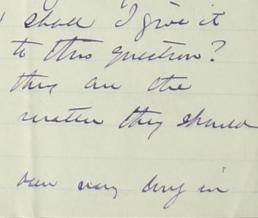 shall I give it
to this question?
they are the
matter they should
very long in